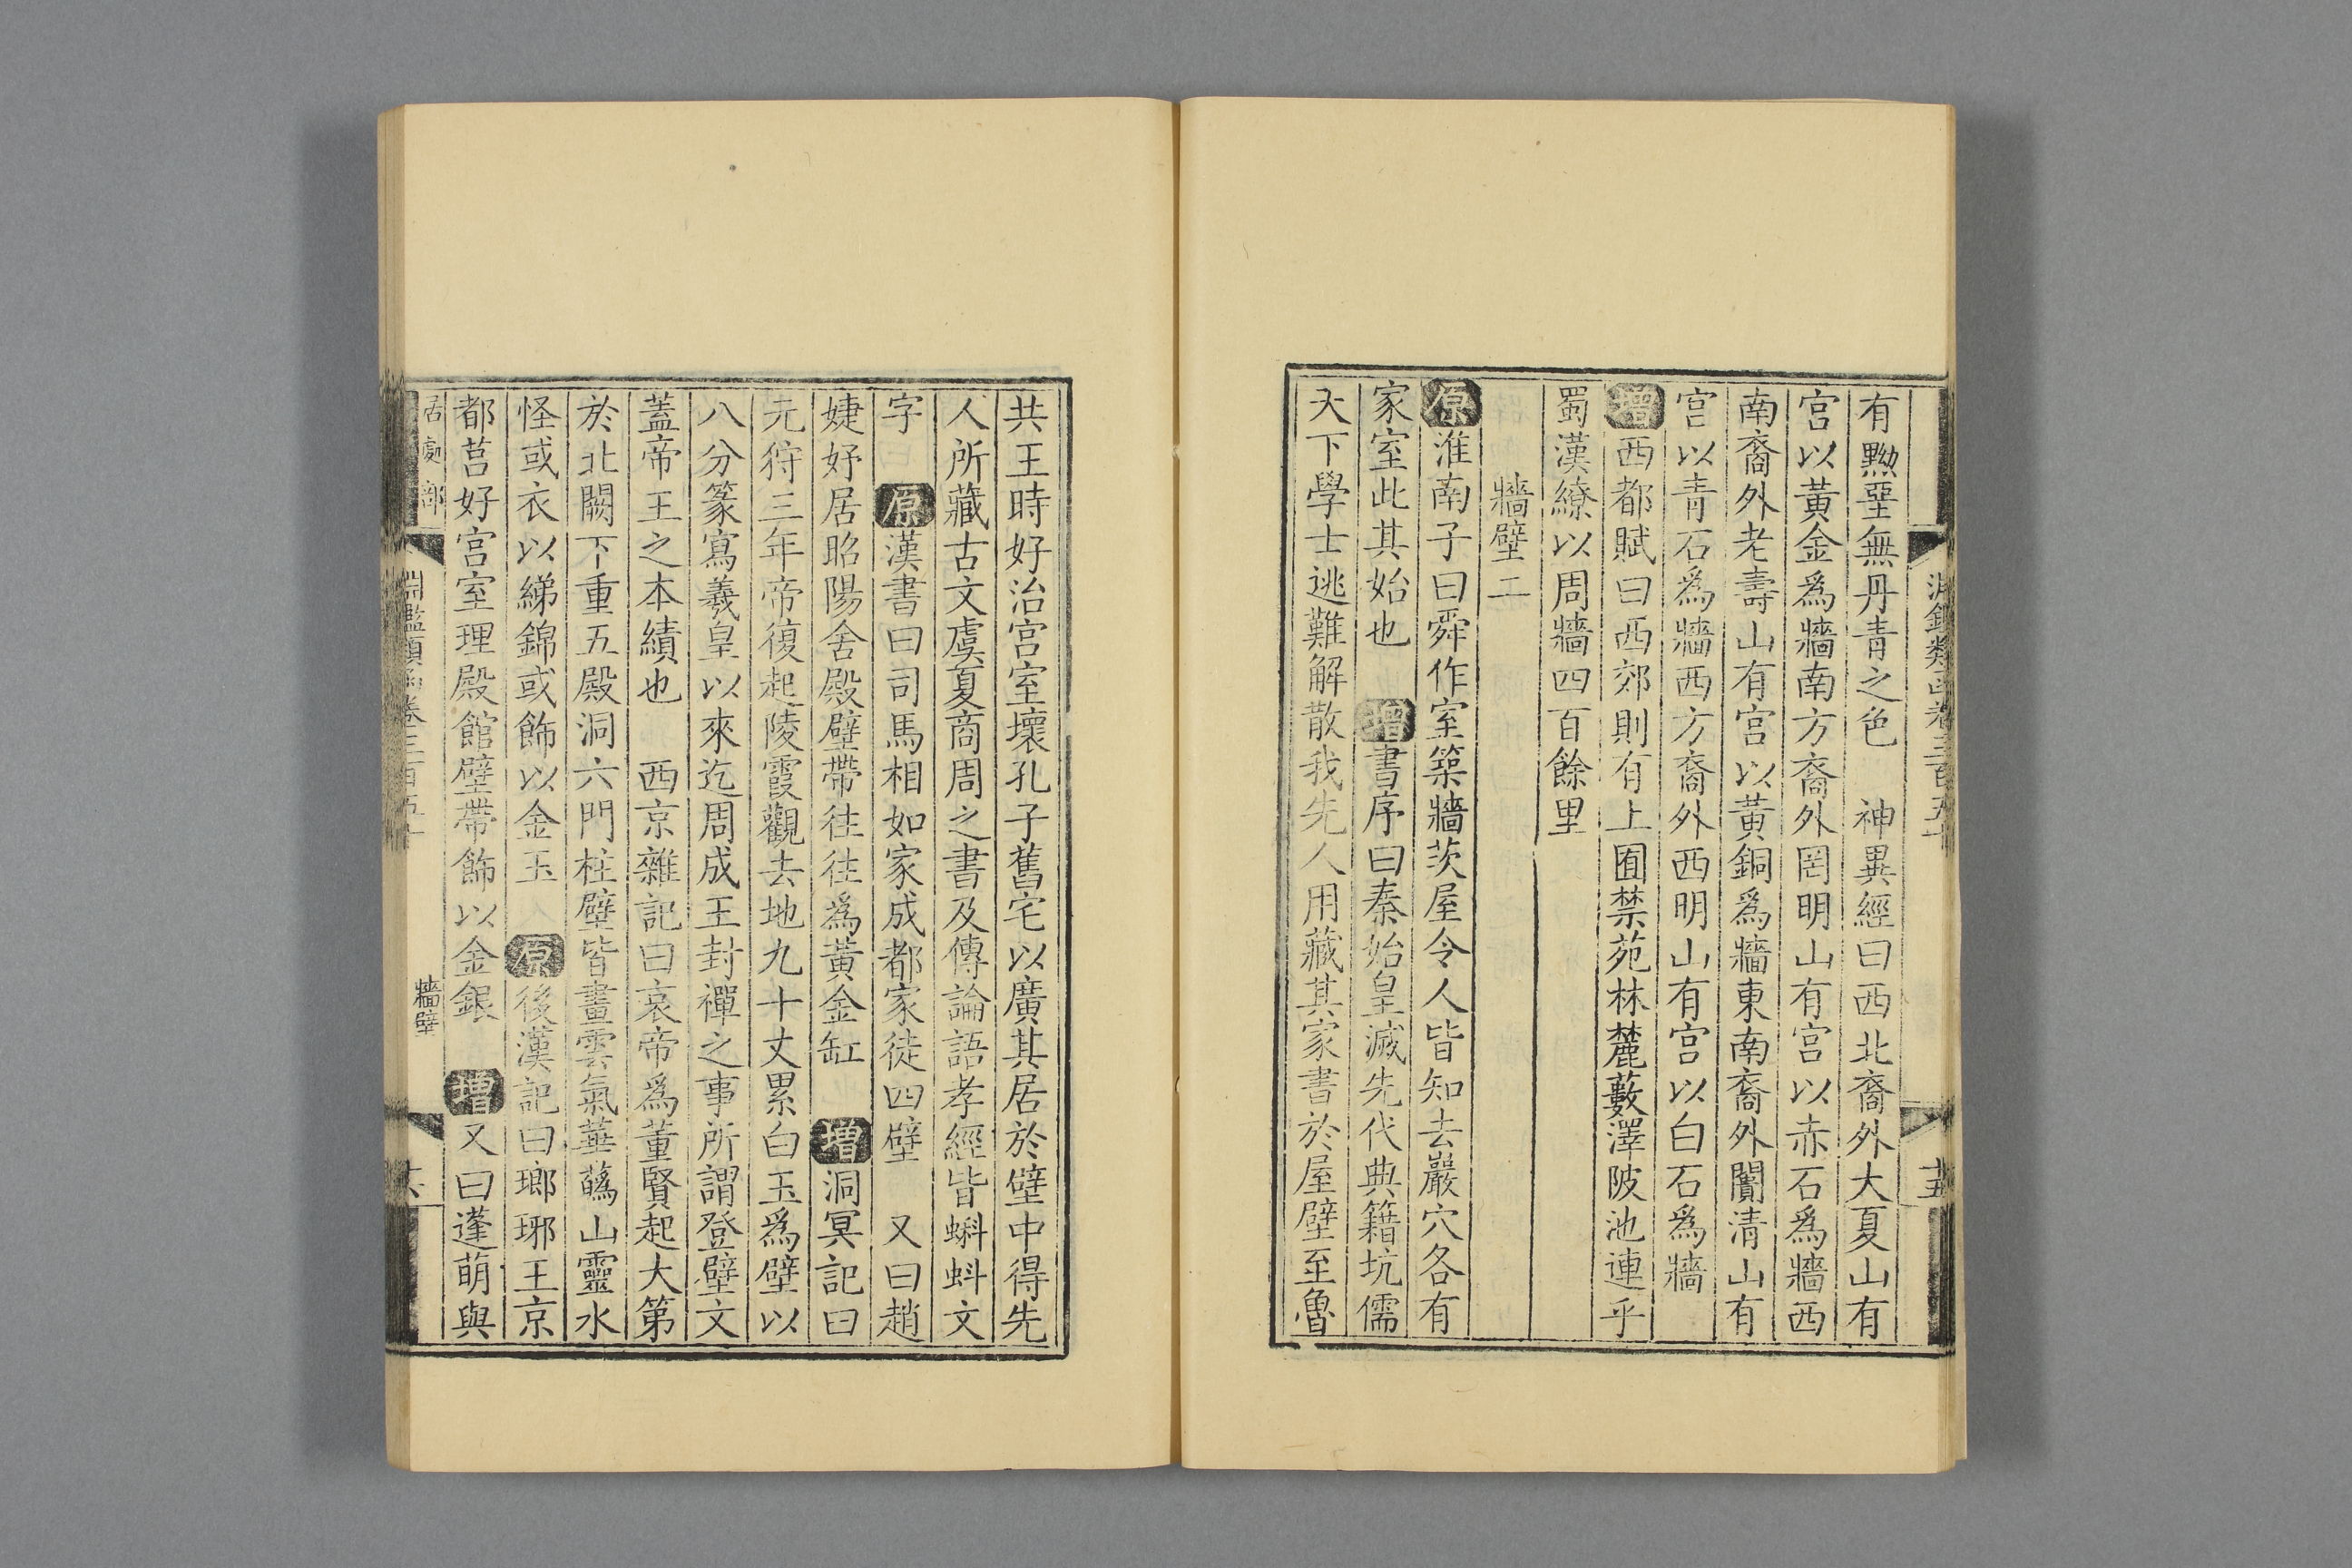 淵鑑類函卷三百五十
十五
有黝堊無丹青之色　神異經曰西北裔外大夏山有
宮以黃金爲牆南方裔外罔明山有宮以赤石爲牆西
南裔外老壽山有宮以黃銅爲牆東南裔外闠清山有
宮以青石爲牆西方裔外西明山有宮以白石爲牆
增西都賦曰西郊則有上囿禁苑林麓藪澤陂池連乎
蜀漢繚以周牆四百餘里
牆壁二
原淮南子曰舜作室築牆茨屋令人皆知去巖穴各有
家室此其始也　增書序曰秦始皇滅先代典籍坑儒
天下學士逃難解散我先人用藏其家書於屋壁至魯
共王時好治宮室壞孔子舊宅以廣其居於壁中得先
人所藏古文虞夏商周之書及傳論語孝經皆蝌蚪文
字　原漢書曰司馬相如家成都家徒四壁　又曰趙
婕妤居昭陽舍殿壁帶往往爲黃金缸　增洞冥記曰
元狩三年帝復起陵霞觀去地九十丈累白玉爲壁以
八分篆寫羲皇以來迄周成王封禪之事所謂登壁文
蓋帝王之本績也　西京雜記曰哀帝爲董賢起大第
於北闕下重五殿洞六門柱壁皆畫雲氣華蘤山靈水
怪或衣以綈錦或飾以金玉　原後漢記曰瑯琊王京
都莒好宮室理殿館壁帶飾以金銀　增又曰蓬萌與
居處部
淵鑑類函卷三百五十
牆壁
十六